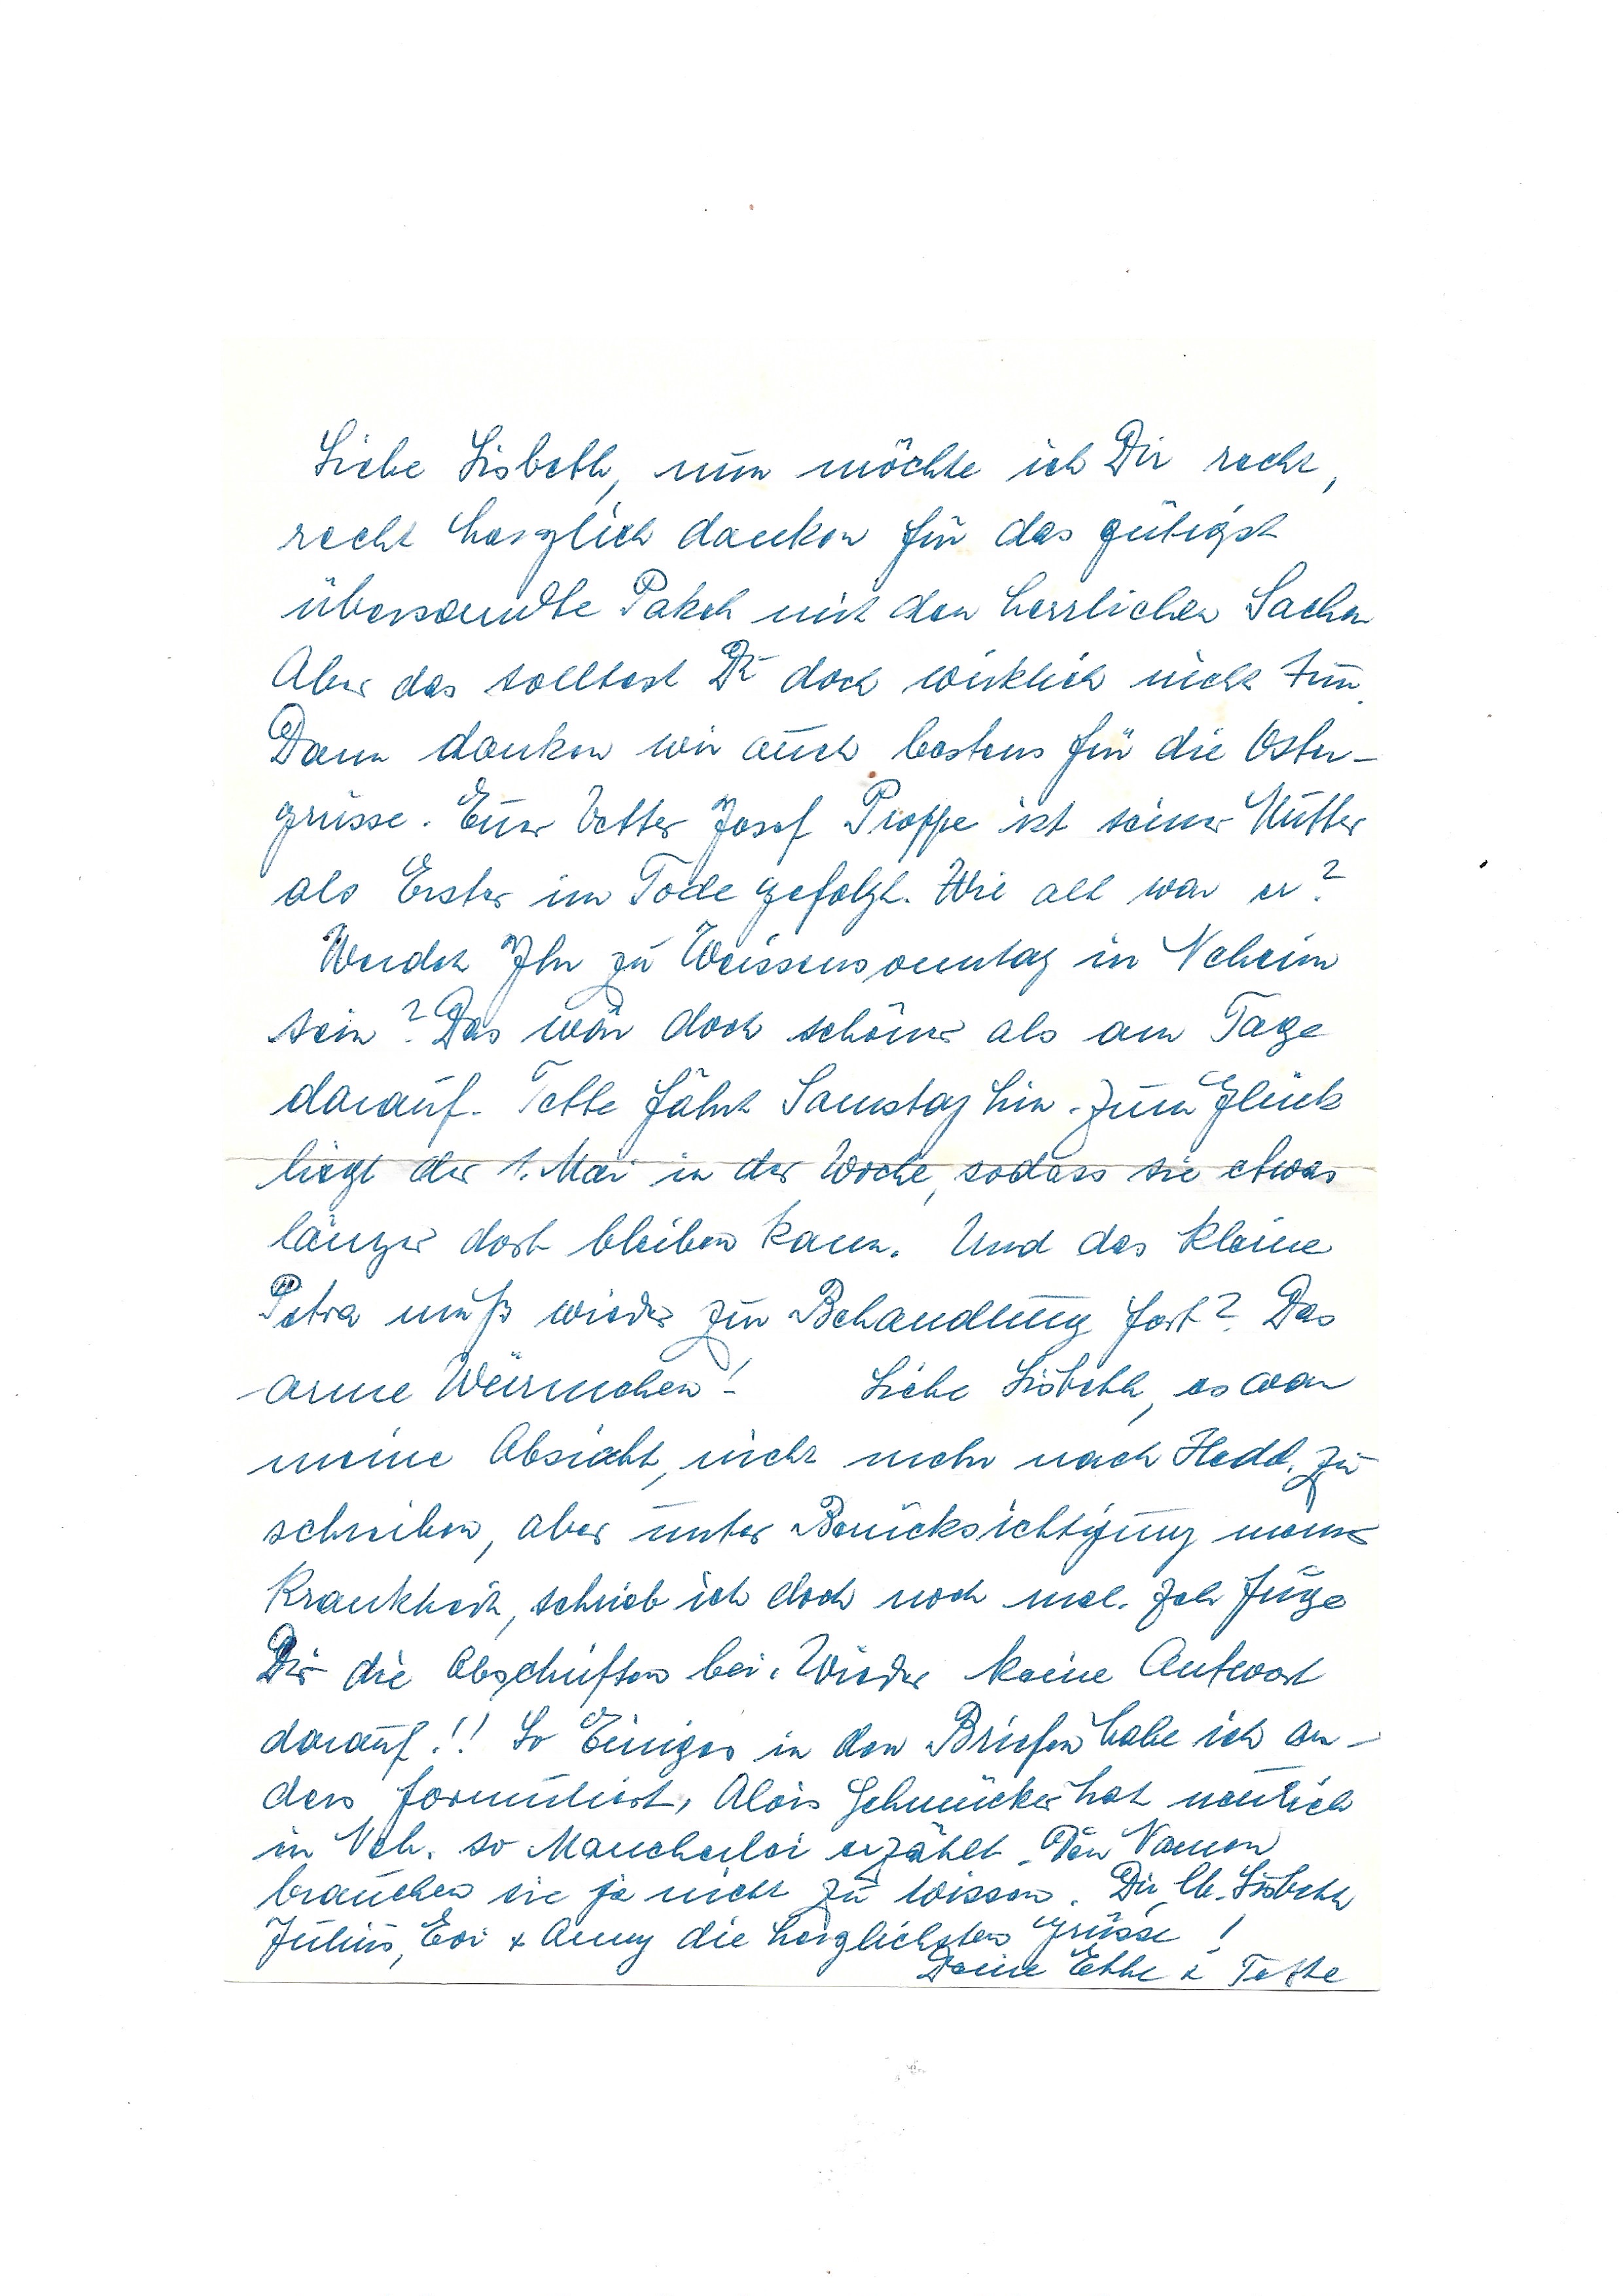 Liebe Lisbeth, nun möchte ich Dir recht,
recht herzlich danken für das gütigst
übersandte Paket mit den herrlichen Sachen
Aber das solltest Du doch wirklich nicht tun.
Dann danken wir auch bestens für die Oster-
grüsse. Euer Vetter Josef Proppe ist seiner Mutter
als Erster im Tode gefolgt. Wie alt war er?
Werdet Ihr zu Weissensonntag in Neheim
sein? Das wär doch schöner als am Tage
darauf. Tette fährt Samstag hin. Zum Glück
liegt der 1. Mai in der Woche, sodass sie etwas
länger dort bleiben kann. Und das kleine
Petra muß wieder zur Behandlung fort? Das
arme Würmchen! Liebe Lisbeth, es war
meine Absicht, nicht mehr nach Hedd. zu
schreiben, aber unter Berücksichtigung meiner
Krankheit, schrieb ich doch noch mal. Ich füge
Dir die Abschriften bei. Wieder keine Antwort
darauf!! So Einiges in den Briefen habe ich an-
ders formuliert, Alois Schmücker hat neulich
in Neh. so Mancherlei erzählt. Den Namen
brauchen sie ja nicht zu wissen. Dir, lb. Lisbeth
Julius, Evi + Anny die herzlichsten Grüsse!
Deine Ebbe & Tette